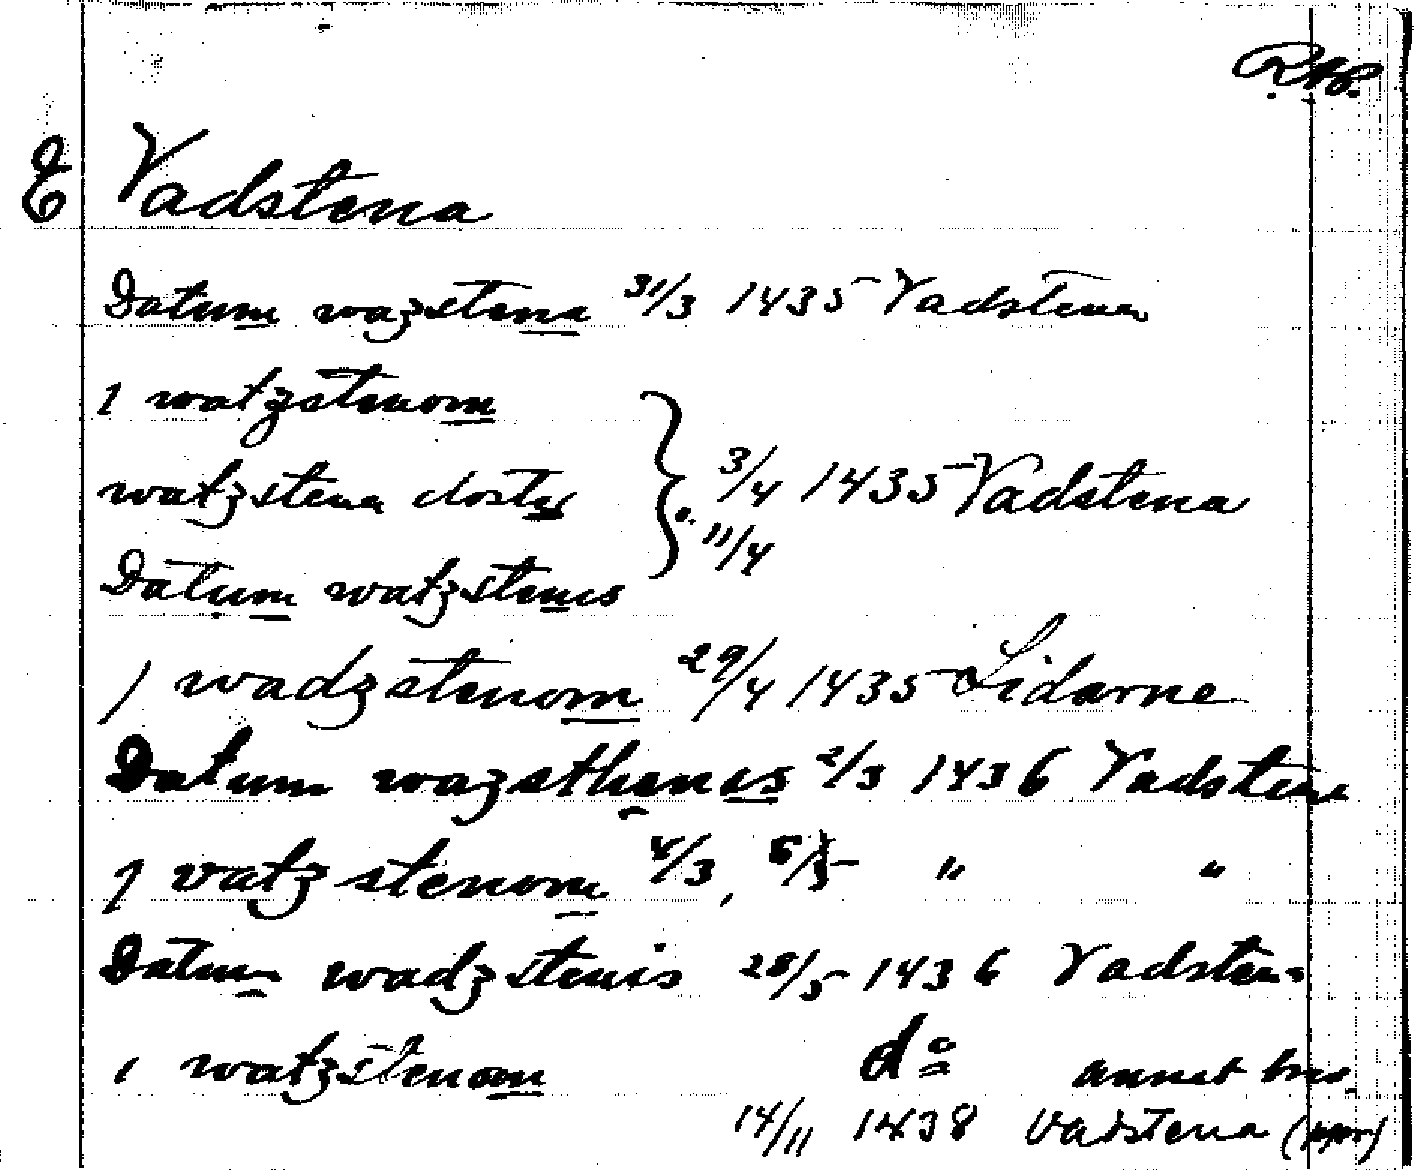 RAP.
Vadstena
Datum wazstena 31/3 1435 Vadstena
J watzstenom
watzstena closter
3/4 1435 Vadstena
11/4
Datum watzstenis
J wadzstenom 29/4 1435 Lidarne
Datum wazsthenis 2/3 1436 Vadstena
J vatzstenom 4/3, 5/3 " "
Datum wadzstenis 28/5 1436 Vadstena
i watzstenom do annat brev.
14/11 1438 Vadstena (ppr)